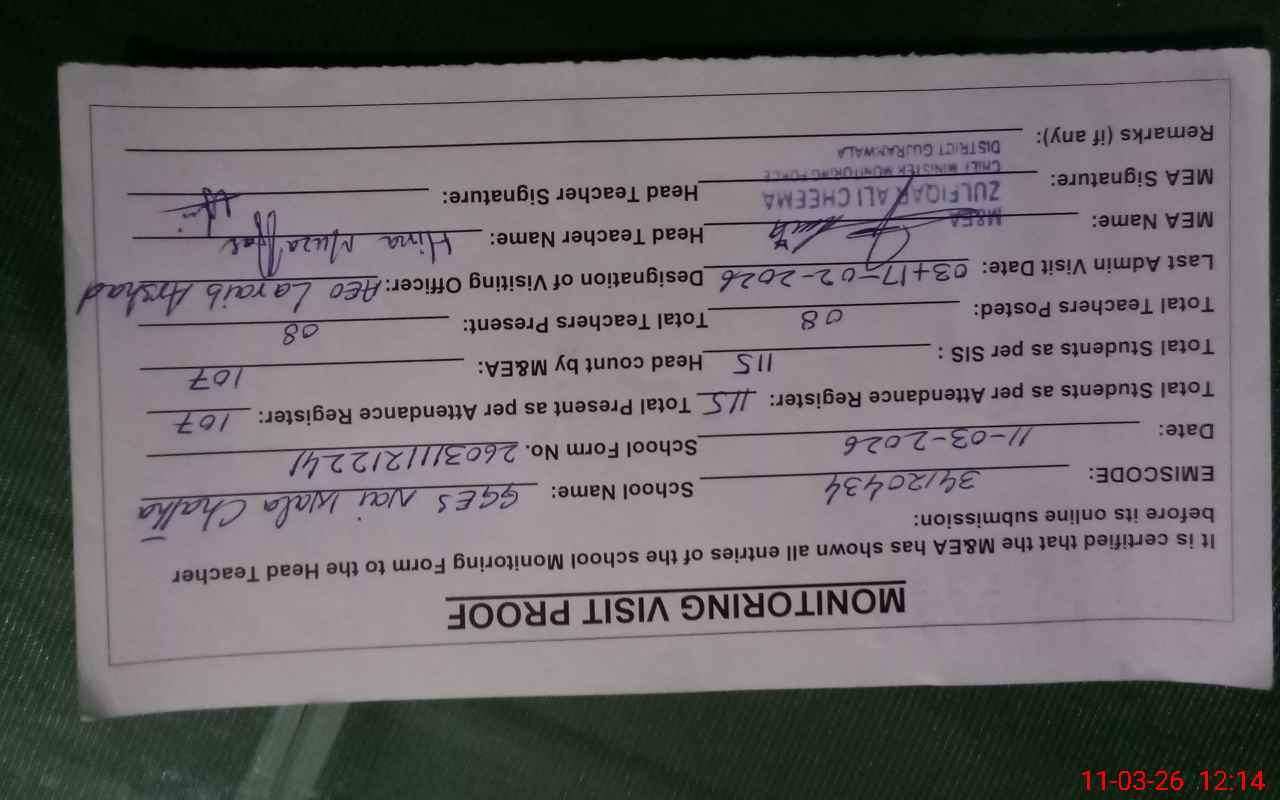 MONITORING VISIT PROOF
It is certified that the M&EA has shown all entries of the school Monitoring Form to the Head Teacher
before its online submission:
EMISCODE: 34120434 School Name: GGES Nai Wala Chatha
Date: 11-03-2026 School Form No. 2603111212241
Total Students as per Attendance Register: 115 Total Present as per Attendance Register: 107
Total Students as per SIS : 115 Head count by M&EA: 107
Total Teachers Posted: 08 Total Teachers Present: 08
Last Admin Visit Date: 03+17-02-2026 Designation of Visiting Officer: AEO Laraib Arshad
MEA Name: Head Teacher Name: Hina Muzaffar
M&EA
ZULFIQAR ALI CHEEMA
MEA Signature: Head Teacher Signature:
CHIEF MINISTER MONITORING FORCE
DISTRICT GUJRANWALA
Remarks (if any):
11-03-26 12:14